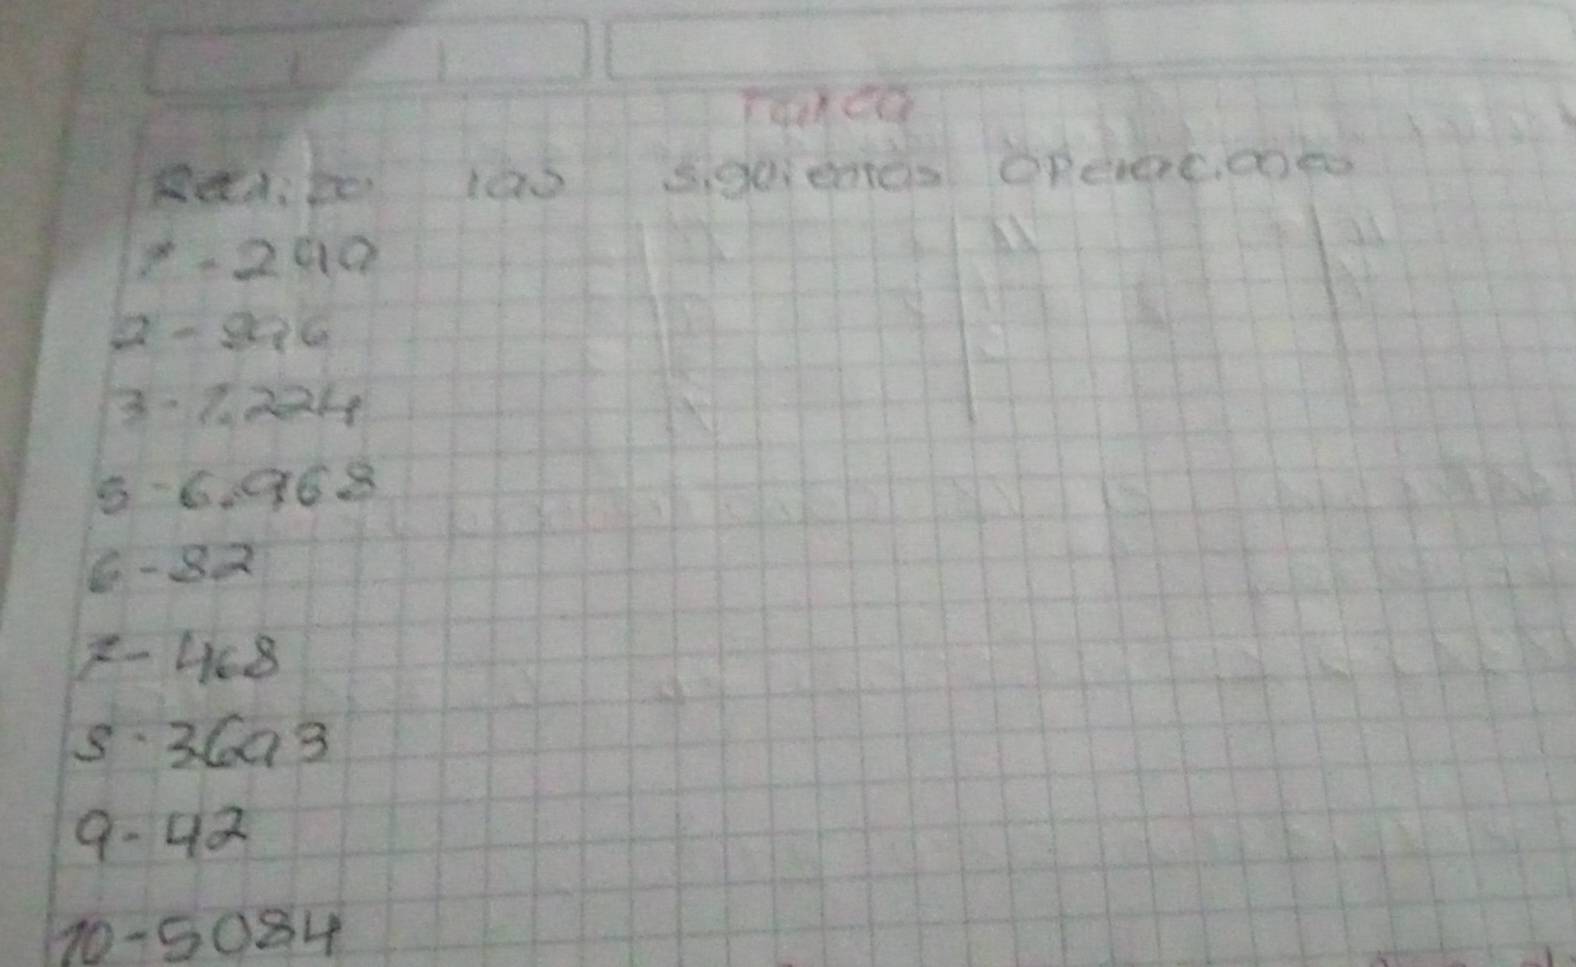 Tarea
Realizo las siguientes operaciones
1-290
2-996
3-7.224
5-6.968
6-82
7-468
8-3693
9-42
10-5084